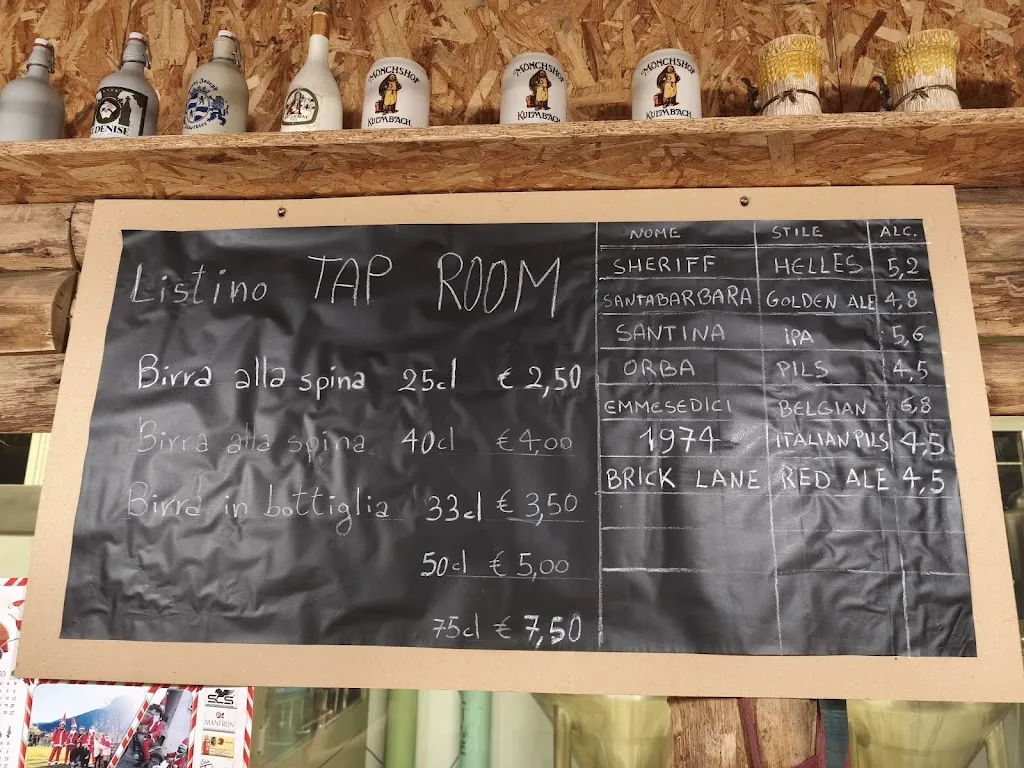 DENISE
MÖNCHSHOF
KULMBACH
MÖNCHSHOF
KULMBACH
MÖNCHSHOF
KULMBACH
Listino TAP ROOM
Birra alla spina 25cl € 2,50
Birra alla spina 40cl € 4,00
Birra in bottiglia 33cl € 3,50
50cl € 5,00
75cl € 7,50
NOME STILE ALC.
SHERIFF HELLES 5,2
SANTABARBARA GOLDEN ALE 4,8
SANTINA IPA 5,6
ORBA PILS 4,5
EMMESEDICI BELGIAN 6,8
1974 ITALIAN PILS 4,5
BRICK LANE RED ALE 4,5
SCS
MANFRON